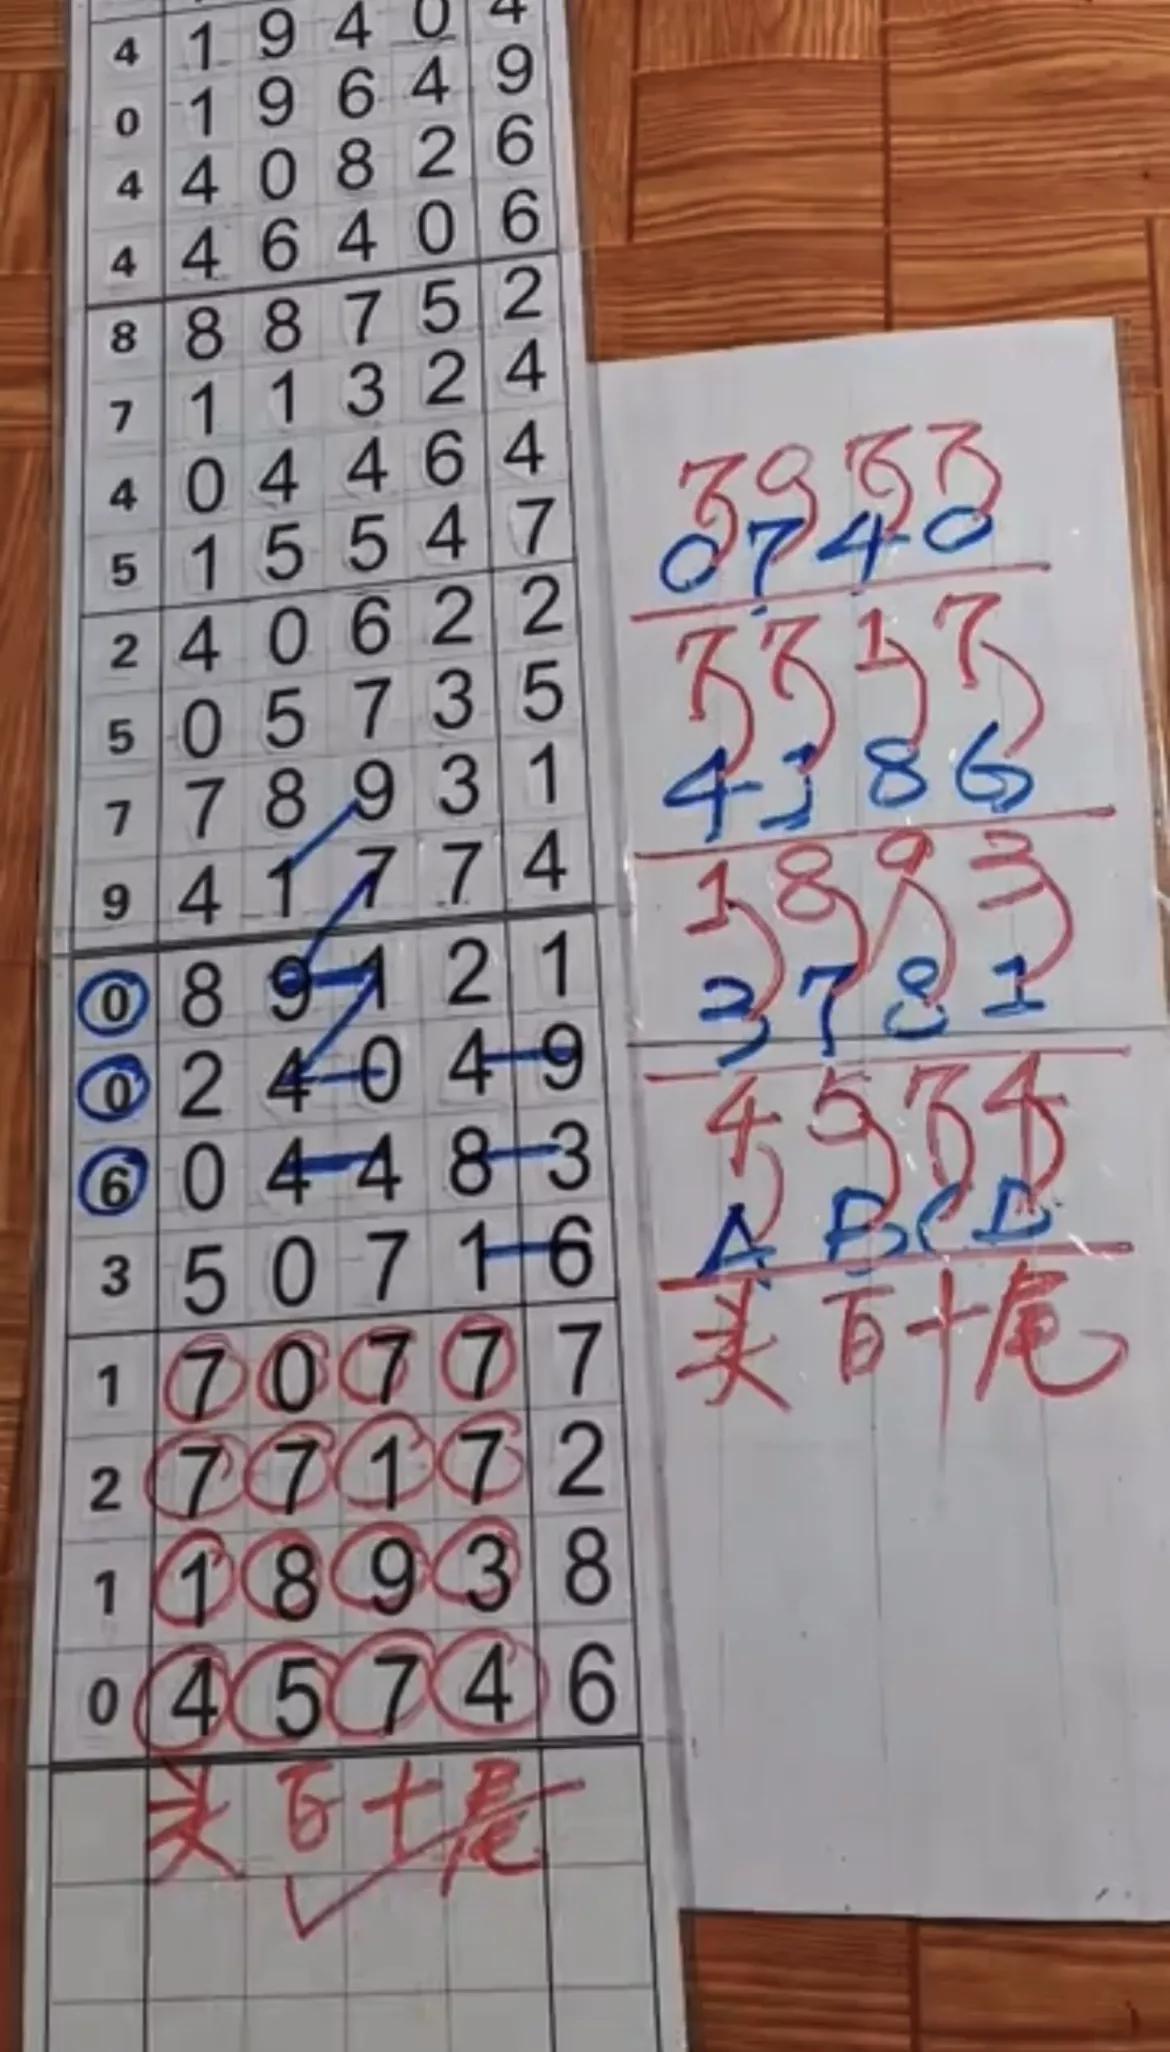 4 1 9 4 0 4
0 1 9 6 4 9
4 4 0 8 2 6
4 4 6 4 0 6
8 8 8 7 5 2
7 1 1 3 2 4
4 0 4 4 6 4
5 1 5 5 4 7
2 4 0 6 2 2
5 0 5 7 3 5
7 7 8 9 3 1
9 4 1 7 7 4
0 8 9 1 2 1
0 2 4 0 4 9
6 0 4 4 8 3
3 5 0 7 1 6
1 7 0 7 7 7
2 7 7 1 7 2
1 1 8 9 3 8
0 4 5 7 4 6
头 百 十 尾
3 9 3 3
0 7 4 0
7 7 1 7
4 1 8 6
1 8 9 3
3 7 8 1
4 5 7 4
A B C D
头 百 十 尾